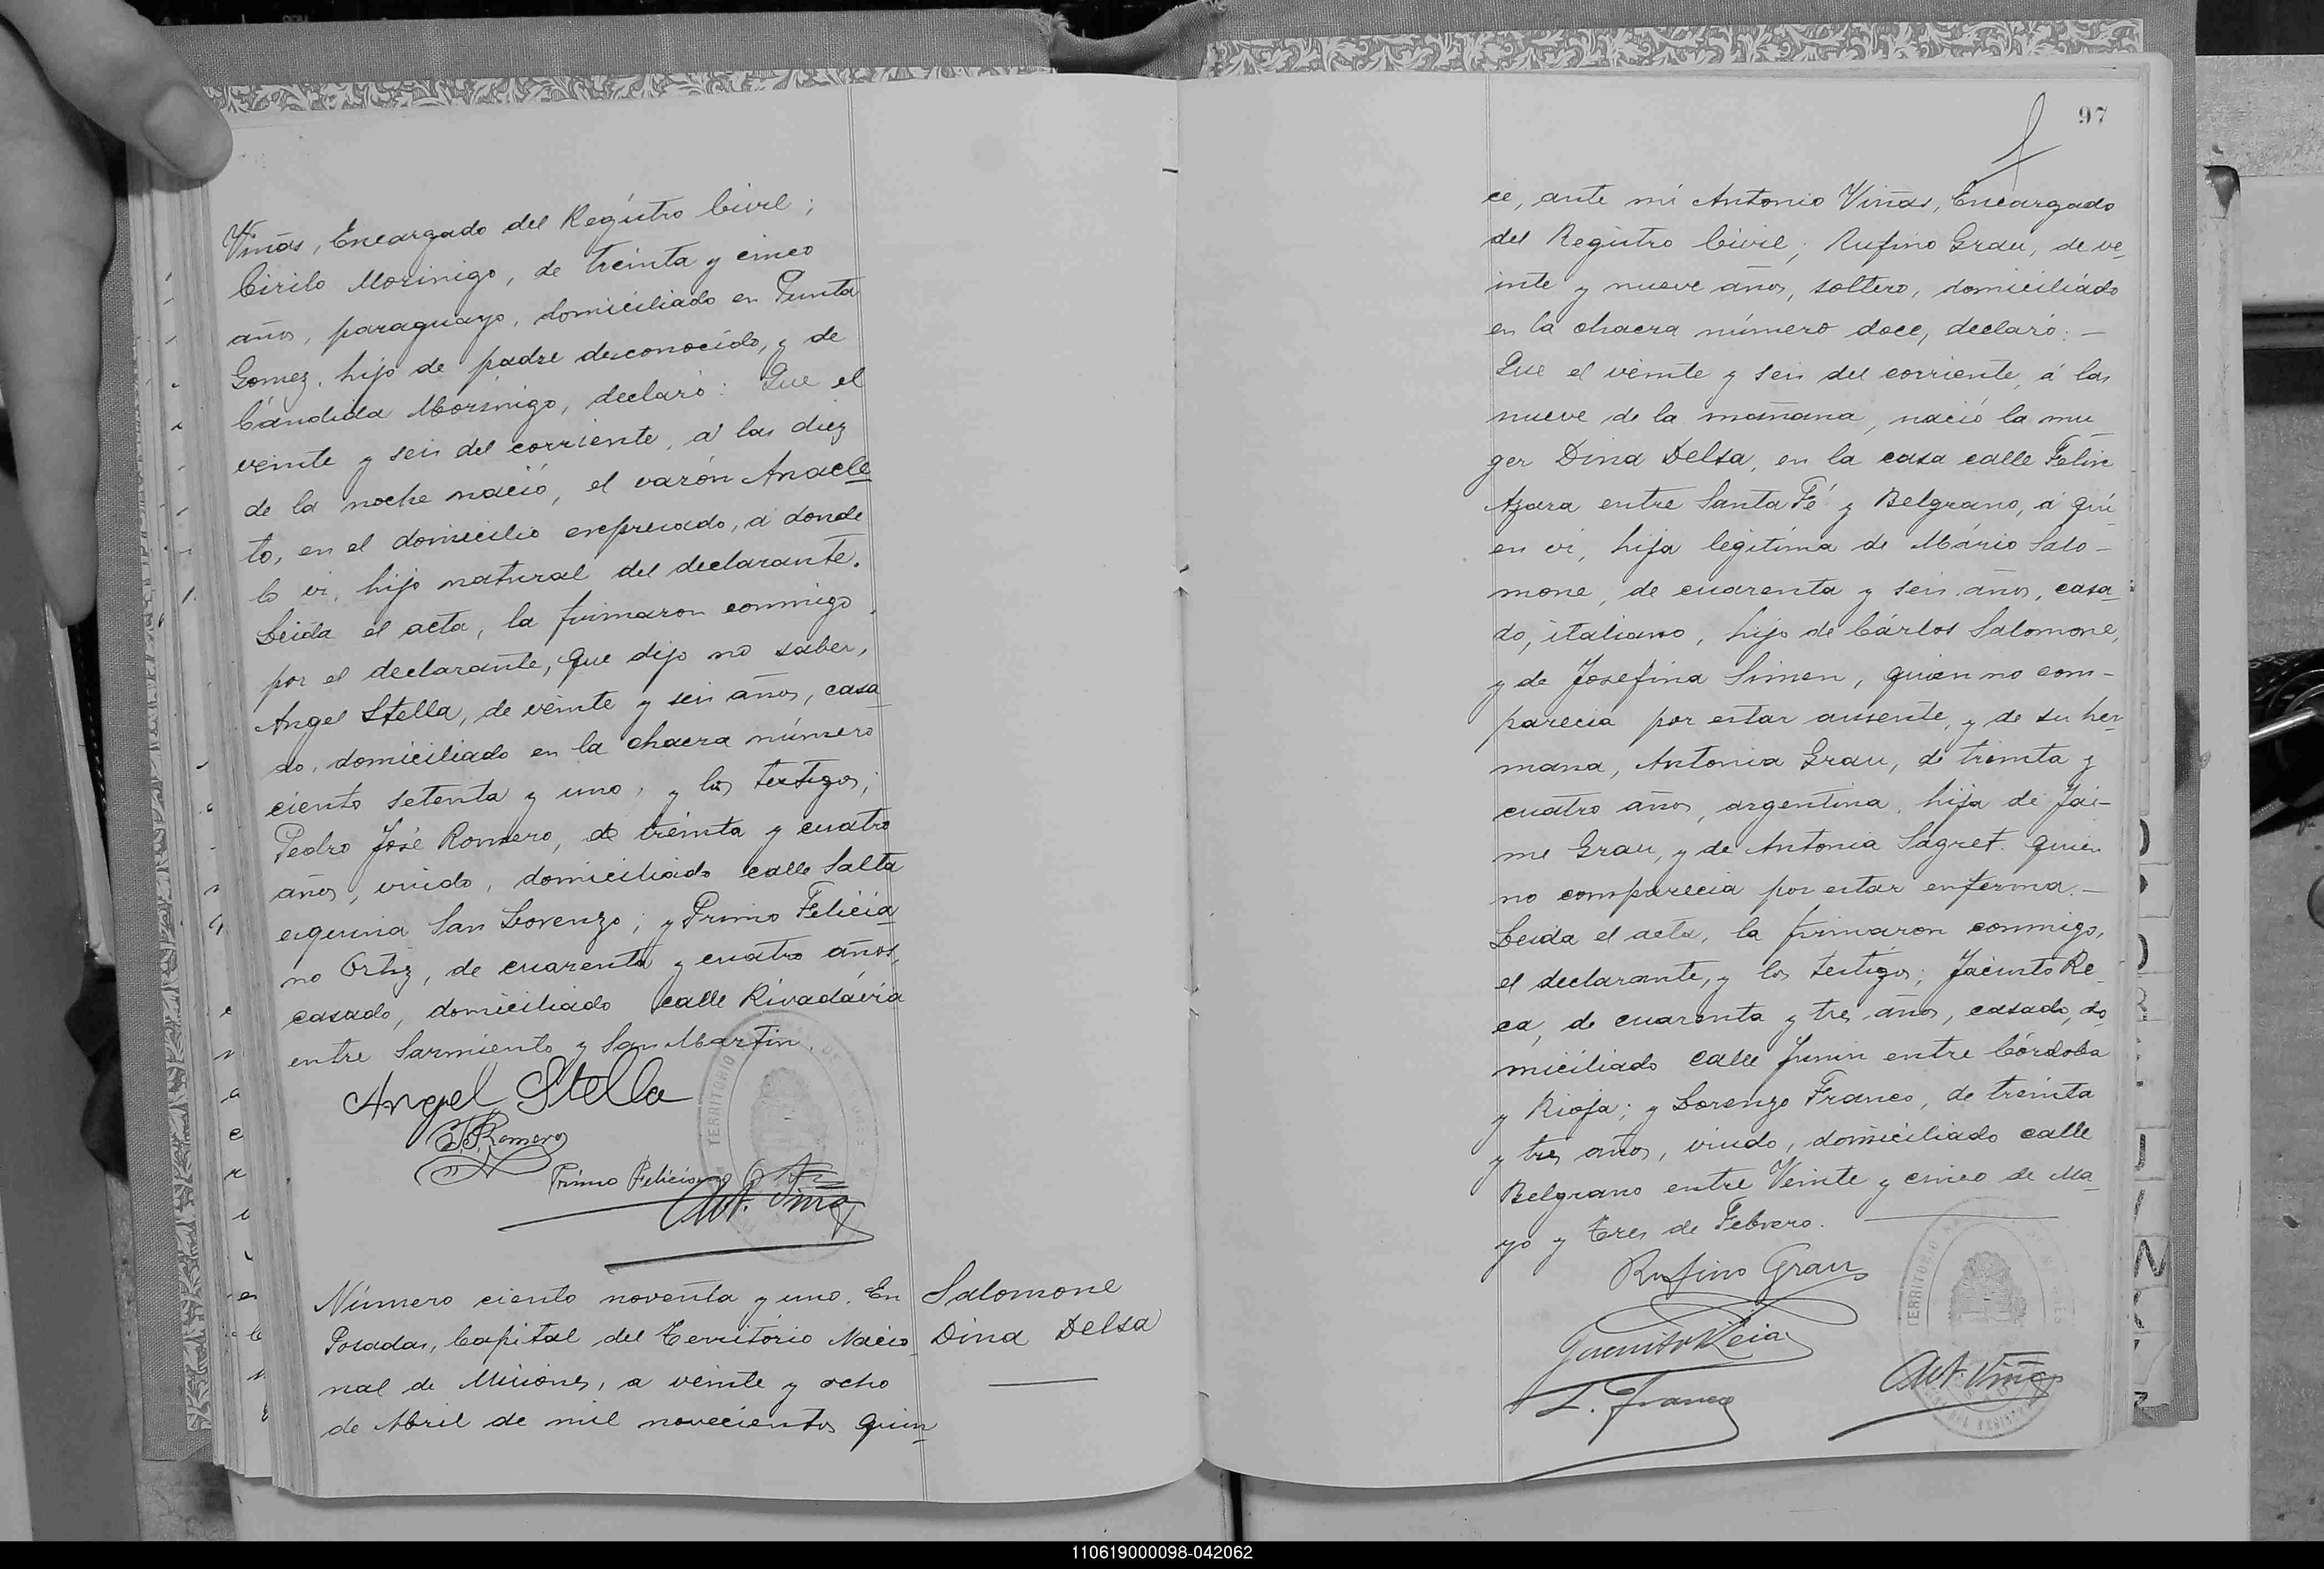 Viñas, Encargado del Registro Civil;
Cirilo Morinigo, de treinta y cinco
años, paraguayo, domiciliado en Punta
Gomez, hijo de padre desconocido, y de
Cándida Morinigo, declaró: Que el
veinte y seis del corriente, á las diez
de la noche nació, el varón Anacle
to, en el domicilio expresado, á donde
lo vi, hijo natural del declarante.
Leida el acta, la firmaron conmigo,
por el declarante, que dijo no saber,
Angel Stella, de veinte y seis años, casa
do, domiciliado en la chacra número
ciento setenta y uno, y los testigos;
Pedro José Romero, de treinta y cuatro
años, viudo, domiciliado calle Salta
esquina San Lorenzo; y Primo Felicia
no Ortiz, de cuarenta y cuatro años,
casado, domiciliado calle Rivadávia
entre Sarmiento y San Martin.
TERRITORIO
Angel Stella
Romero
Primo Feliciano Ortiz
Ant. Viñas
Número ciento noventa y uno. En
Posadas, Capital del Território Nacio
nal de Misiones, a veinte y ocho
de Abril de mil novecientos quin
Salomone
Dina Delsa
97
ce, ante mi Antonio Viñas, Encargado
del Registro Civil; Rufino Grau, de ve
inte y nueve años, soltero, domiciliádo
en la chacra número doce, declaró: -
Que el veinte y seis del corriente, á las
nueve de la mañana, nació la mu
ger Dina Delsa, en la casa calle Felix
Azara entre Santa Fé y Belgrano, á qui
en vi, hija legitima de Mário Salo-
mone, de cuarenta y seis años, casa
do, italiano, hijo de Cárlos Salomone,
y de Josefina Simen, quien no com-
parecia por estar ausente, y de su her
mana, Antonia Grau, de treinta y
cuatro años, argentina, hija de Jai-
me Grau, y de Antonia Sagret. quien
no comparecia por estar enferma. -
Leida el acta, la firmaron conmigo,
el declarante, y los testigos; Jacinto Re
ca, de cuarenta y tres años, casado, do
miciliado calle Junin entre Córdoba
y Rioja; y Lorenzo Franco, de treinta
y tres años, viudo, domiciliado calle
Belgrano entre Veinte y cinco de Ma
yo y Tres de Febrero.
TERRITORIO
Rufino Grau
L. Franco
Ant. Viñas
110619000098-042062